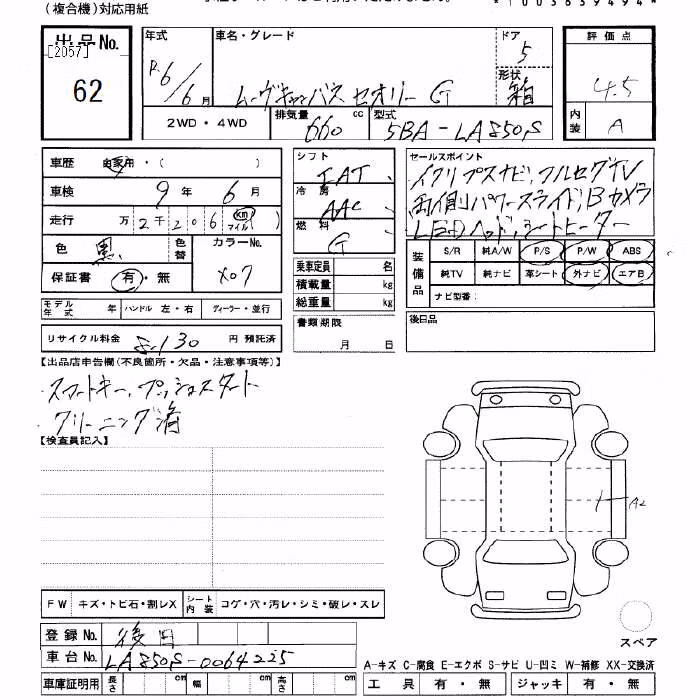 (複合機)対応用紙
出品No.
[2057]
62
年式 R6/6月
車名・グレード
ムーヴキャンバス セオリー G
ドア 5
形状 箱
評価点 4.5
内装 A
2WD・4WD
排気量 660 cc
型式 5BA-LA850S
車歴 自家用・( )
車検 9年 6月
走行 万2千206 km マイル
色 黒 色替 カラーNo. X07
保証書 有・無
モデル年式 年 ハンドル 左・右 ディーラー・並行
リサイクル料金 8,130 円 預託済
シフト IAT
冷房 AAC
燃料 G
乗車定員 名
積載量 kg
総重量 kg
書類期限
月 日
セールスポイント
イクリプスナビ、フルセグTV
両側パワースライド、Bカメラ
LEDヘッド、シートヒーター
装備品
S/R 純A/W P/S P/W ABS
純TV 純ナビ 革シート 外ナビ エアB
ナビ型番:
後日品
【出品店申告欄(不良箇所・欠品・注意事項等)】
・スマートキー、プッシュスタート
・クリーニング済
【検査員記入】
A2
FW キズ・トビ石・割レX シート内装 コゲ・穴・汚レ・シミ・破レ・スレ
登録No. 後日
車台No. LA850S-0064225
車庫証明用 長さ cm 幅 cm 高さ cm
スペア
A-キズ C-腐食 E-エクボ S-サビ U-凹ミ W-補修 XX-交換済
工具 有・無 ジャッキ 有・無